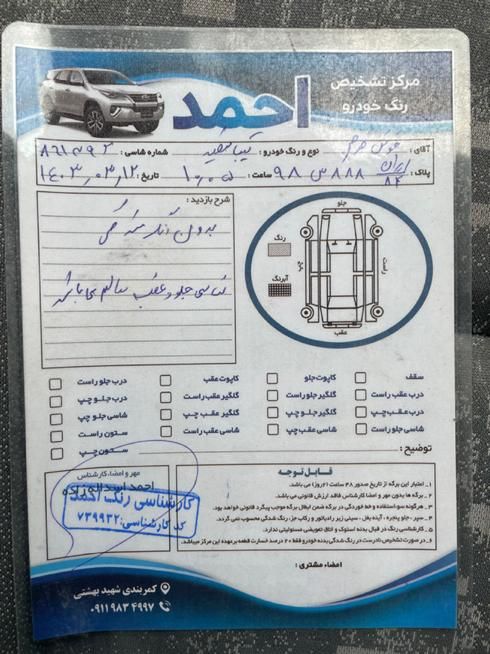 مرکز تشخیص
رنگ خودرو
احمد
آقای: خوش خرم نوع و رنگ خودرو: تیبا سفید شماره شاسی: ۸۹۱۲۹۲
پلاک: ایران ۸۴ ۸۸۸ س ۹۸ ساعت: ۱۰:۰۵ تاریخ: ۱۴۰۳،۰۳،۱۲
شرح بازدید:
بدون
شاسی جلو و عقب سالم می‌باشد
جلو
رنگ
آبرنگ
چپ
راست
عقب
سقف کاپوت جلو کاپوت عقب درب جلو راست
درب عقب راست گلگیر جلو راست گلگیر عقب راست درب جلو چپ
درب عقب چپ گلگیر جلو چپ گلگیر عقب چپ شاسی جلو چپ
شاسی جلو راست شاسی عقب چپ شاسی عقب راست ستون راست
ستون چپ
توضیح:
قابل توجه
۱. اعتبار این برگه از تاریخ صدور ۴۸ ساعت (۲روز) می باشد.
۲. برگه ها بدون مهر و امضاء کارشناس فاقد ارزش قانونی می باشد.
۳. هرگونه سوء استفاده و خط خوردگی در برگه ضمن ابطال برگه موجب پیگرد قانونی خواهد بود.
۴. سپر - جلو پنجره، آینه بغل - سینی زیر رادیاتور و رکاب جزء رنگ شدگی محسوب نمی گردد.
۵. کارشناسی رنگ در قبال بدنه استوک و اتاق تعویضی مسئولیتی ندارد.
۶. در صورت تشخیص نادرست در رنگ شدگی بدنه خودرو فقط ۲۰ درصد خسارت قطعه برعهده این مرکز میباشد.
امضاء مشتری:
مهر و امضاء کارشناس
احمد اسداله زاده
کارشناسی رنگ احمد
کد کارشناسی: ۷۳۹۹۳۲
کمربندی شهید بهشتی
۰۹۱۱ ۹۸۳ ۴۹۹۷